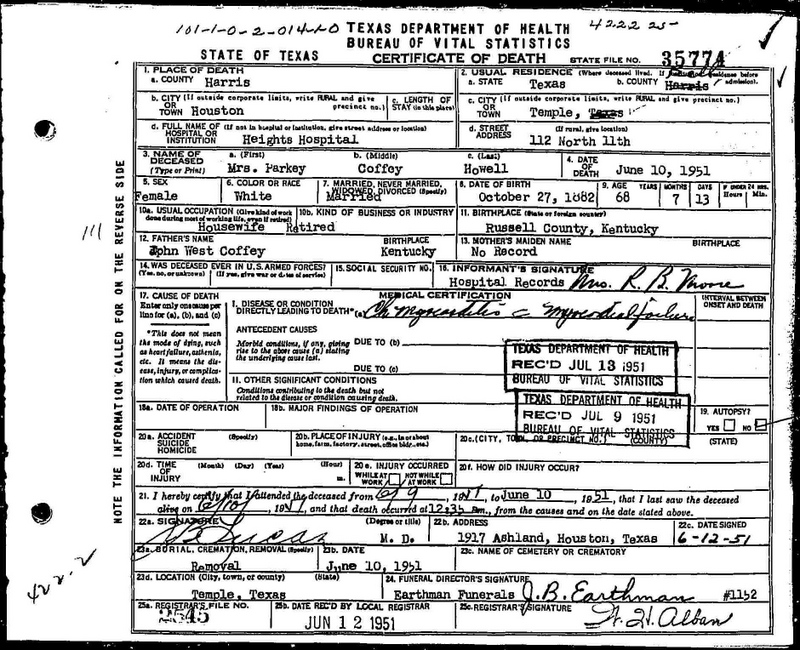 101-1-0-2-014-1-0 TEXAS DEPARTMENT OF HEALTH 4222 25-
BUREAU OF VITAL STATISTICS
STATE OF TEXAS CERTIFICATE OF DEATH STATE FILE NO. 35774
1. PLACE OF DEATH
a. COUNTY Harris
2. USUAL RESIDENCE (Where deceased lived. If residence before admission).
a. STATE Texas b. COUNTY Harris
b. CITY (If outside corporate limits, write RURAL and give precinct no.)
OR TOWN Houston
c. LENGTH OF STAY (in this place)
c. CITY (If outside corporate limits, write RURAL and give precinct no.)
OR TOWN Temple, Texas
d. FULL NAME OF (If not in hospital or institution, give street address or location)
HOSPITAL OR INSTITUTION Heights Hospital
d. STREET ADDRESS (If rural, give location)
112 North 11th
3. NAME OF DECEASED (Type or Print)
a. (First) Mrs. Parkey
b. (Middle) Coffey
c. (Last) Howell
4. DATE OF DEATH June 10, 1951
5. SEX Female
6. COLOR OR RACE White
7. MARRIED, NEVER MARRIED, WIDOWED, DIVORCED (Specify) Married
8. DATE OF BIRTH October 27, 1882
9. AGE YEARS 68 MONTHS 7 DAYS 13 IF UNDER 24 HRS. Hours Min.
10a. USUAL OCCUPATION (Give kind of work done during most of working life, even if retired)
Housewife
10b. KIND OF BUSINESS OR INDUSTRY
Retired
11. BIRTHPLACE (State or foreign country)
Russell County, Kentucky
12. FATHER'S NAME BIRTHPLACE
John West Coffey Kentucky
13. MOTHER'S MAIDEN NAME BIRTHPLACE
No Record
14. WAS DECEASED EVER IN U.S. ARMED FORCES?
(Yes, no, or unknown) (If yes, give war or dates of service)
15. SOCIAL SECURITY NO.
16. INFORMANT'S SIGNATURE
Hospital Records Mrs. R. B. Moore
17. CAUSE OF DEATH
Enter only one cause per line for (a), (b), and (c)
*This does not mean the mode of dying, such as heart failure, asthenia, etc. It means the disease, injury, or complication which caused death.
MEDICAL CERTIFICATION
INTERVAL BETWEEN ONSET AND DEATH
I. DISEASE OR CONDITION DIRECTLY LEADING TO DEATH* (a) Ch Myocarditis c Myocardial failure
ANTECEDENT CAUSES
Morbid conditions, if any, giving rise to the above cause (a) stating the underlying cause last.
DUE TO (b)
DUE TO (c)
II. OTHER SIGNIFICANT CONDITIONS
Conditions contributing to the death but not related to the disease or condition causing death.
TEXAS DEPARTMENT OF HEALTH
REC'D JUL 13 1951
BUREAU OF VITAL STATISTICS
TEXAS DEPARTMENT OF HEALTH
REC'D JUL 9 1951
BUREAU OF VITAL STATISTICS
18a. DATE OF OPERATION
18b. MAJOR FINDINGS OF OPERATION
19. AUTOPSY?
YES NO
20a. ACCIDENT (Specify)
SUICIDE
HOMICIDE
20b. PLACE OF INJURY (e.g., in or about home, farm, factory, street, office bldg., etc.)
20c. (CITY, TOWN, OR PRECINCT NO.) (COUNTY) (STATE)
20d. TIME OF INJURY (Month) (Day) (Year) (Hour) m.
20e. INJURY OCCURRED
WHILE AT WORK NOT WHILE AT WORK
20f. HOW DID INJURY OCCUR?
21. I hereby certify that I attended the deceased from 6/9, 1951, to June 10, 1951, that I last saw the deceased
alive on 6/10, 1951, and that death occurred at 12:35 am., from the causes and on the date stated above.
22a. SIGNATURE (Degree or title)
M. D.
22b. ADDRESS
1917 Ashland, Houston, Texas
22c. DATE SIGNED
6-12-51
23a. BURIAL, CREMATION, REMOVAL (Specify)
Removal
23b. DATE
June 10, 1951
23c. NAME OF CEMETERY OR CREMATORY
23d. LOCATION (City, town, or county) (State)
Temple, Texas
24. FUNERAL DIRECTOR'S SIGNATURE
Earthman Funerals J. B. Earthman #1152
25a. REGISTRAR'S FILE NO.
2545
25b. DATE REC'D BY LOCAL REGISTRAR
JUN 12 1951
25c. REGISTRAR'S SIGNATURE
H. Alban
NOTE THE INFORMATION CALLED FOR ON THE REVERSE SIDE
111
422.2